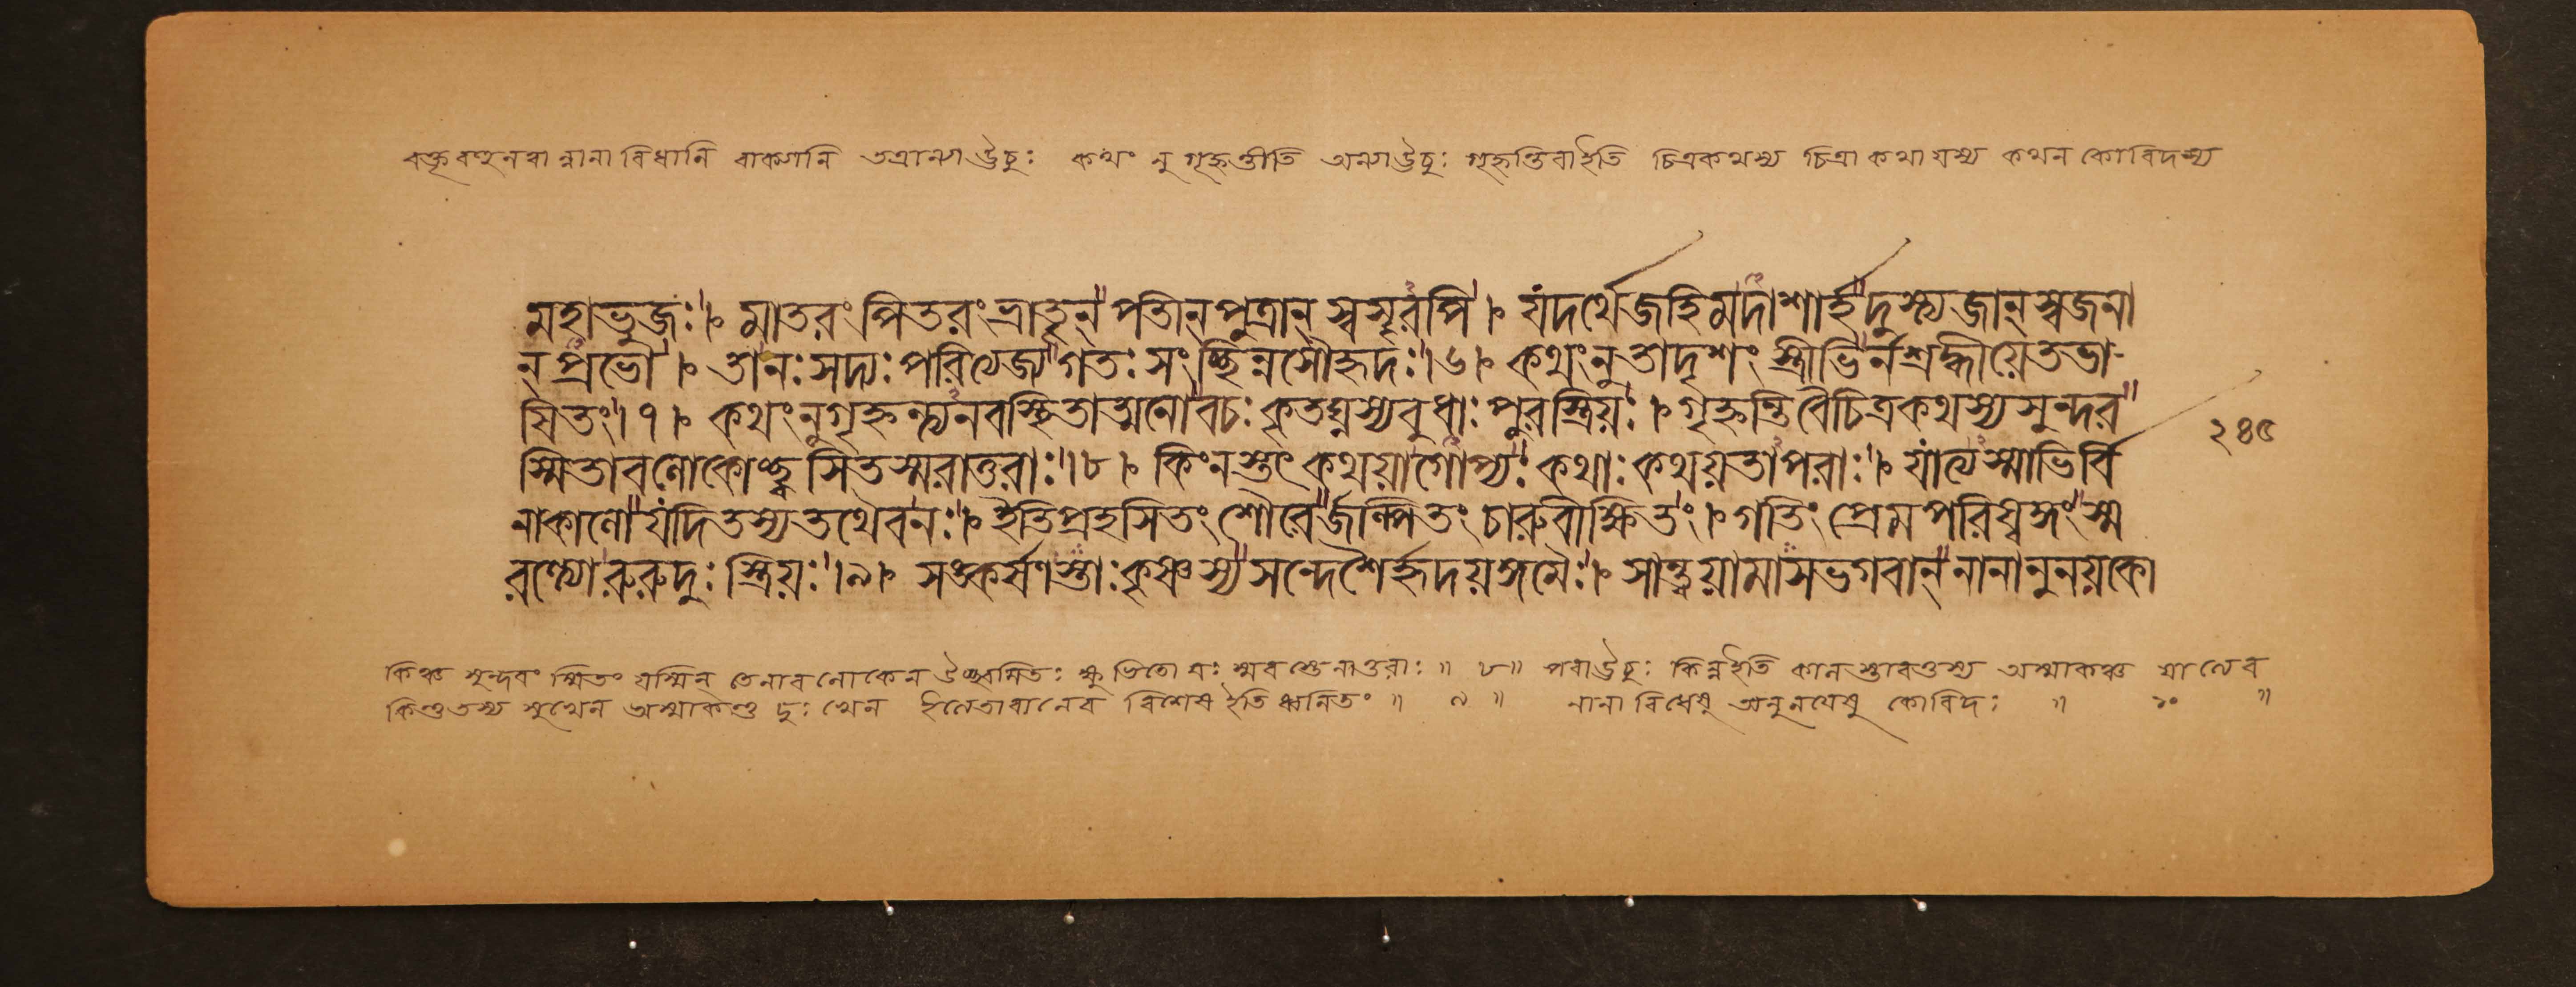 বক্তৃবহুনবা ন্নানা বিধানি বাক্যানি তত্রান্যাউচুঃ কথং নু গৃহ্নন্তীতি অন্যাউচুঃ গৃহ্নন্তিবাইতি চিত্রকথস্য চিত্রা কথা যস্য কথন কোবিদস্য
মহাভুজঃ। মাতরং পিতরং ভ্রাতৄন্ পতীন্ পুত্রান্ স্বসৄরপি। যদর্থেজহিমদাশার্হদুস্ত্যজান্ স্বজনা
ন্ প্রভো। তানঃসদ্যঃপরিত্যজ্যগতঃসংচ্ছিন্নসৌহৃদঃ।৬। কথংনুতাদৃশং স্ত্রীভির্নশ্রদ্ধীয়েতভা-
সিতং।৭। কথংনুগৃহ্নন্ত্যনবস্থিতাত্মনোবচঃকৃতঘ্নস্যবুধাঃপুরস্ত্রিয়ঃ। গৃহ্নন্তিবৈচিত্রকথস্যসুন্দর
২৪৫
স্মিতাবলোকোচ্ছ্বসিতস্মরাতুরাঃ।৮। কিংনস্তৎকথয়াগোপ্যঃকথাঃকথয়তাপরাঃ। যাত্যস্মাভির্বি
নাকালোযদিতস্যতথৈবনঃ। ইতিপ্রহসিতং শৌরের্জল্পিতং চারুবীক্ষিতং। গতিং প্রেমপরিষ্বঙ্গংস্ম
রন্ত্যোরুরুদুঃ স্ত্রিয়ঃ।৯। সঙ্কর্সণস্তাঃকৃষ্ণস্যসন্দেশৈর্হৃদয়ঙ্গমৈঃ। সান্ত্বয়ামাসভগবান্ নানানুনয়কো
কিঞ্চ সুন্দরং স্মিতং যস্মিন্ তেনাবলোকেন উচ্ছ্বসিতঃ ক্ষুভিতো যঃ স্মরস্তেনাতুরাঃ॥ ৮॥ পরাউচুঃ কিন্নইতি কালস্তাবত্তস্য অস্মাকঞ্চ যাত্যেব
কিন্তুতস্য সুখেন অস্মাকন্তু দুঃখেন ইত্যেতাবানেব বিশেষ ইতি ধ্বনিতং॥ ৯॥ নানা বিধেষু অনুনয়েষু কোবিদঃ॥ ১০॥